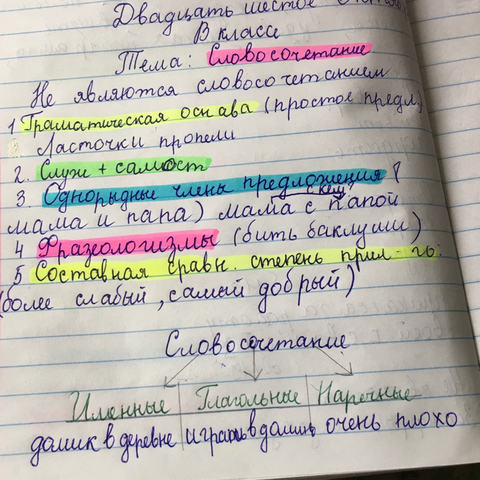 Двадцать шестое
В классе
Тема: Словосочетание
Не являются словосочетанием
1 Граматическая основа (простое предл.)
Ласточки пропели
2. Служ + самост
3. Однорыдные члены предложения (
с кем?
мама и папа) мама с папой
4 Фразеологизмы (бить баклуши)
5 Составная сравн. степень прил-го:
(более слабый, самый добрый)
Словосочетание
Именные Глагольные Наречные
домик в деревне играть в домик очень плохо